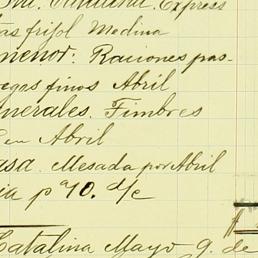 Express
frijol Medina
menor. Raciones pas-
finos Abril
nerales. Timbres
en Abril
asa. Mesada por Abril
ia pa 10. d/c
Catalina Mayo 9. de